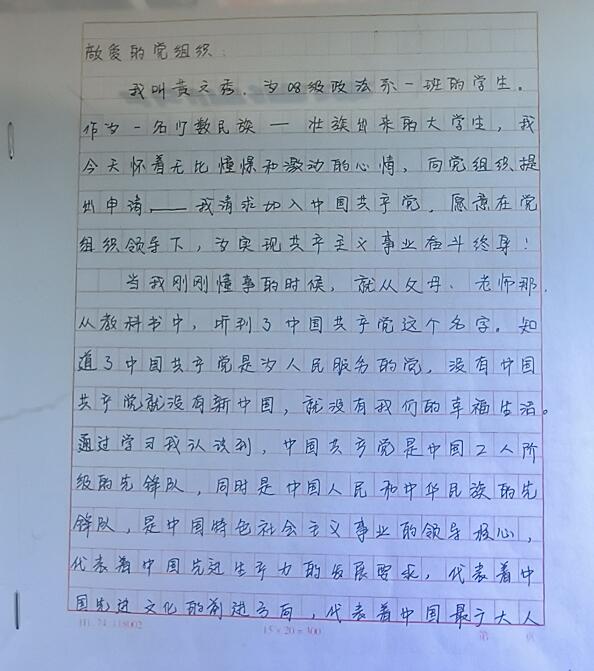 敬爱的党组织:
我叫黄文秀，为08级政法系一班的学生。
作为一名少数民族—壮族出来的大学生，我
今天怀着无比憧憬和激动的心情，向党组织提
出申请——我请求加入中国共产党，愿意在党
组织领导下，为实现共产主义事业奋斗终身！
当我刚刚懂事的时候，就从父母、老师那，
从教科书中，听到了中国共产党这个名字。知
道了中国共产党是为人民服务的党，没有中国
共产党就没有新中国，就没有我们的幸福生活。
通过学习我认识到，中国共产党是中国工人阶
级的先锋队，同时是中国人民和中华民族的先
锋队，是中国特色社会主义事业的领导核心，
代表着中国先进生产力的发展要求，代表着中
国先进文化的前进方向，代表着中国最广大人
15×20=300
第 页